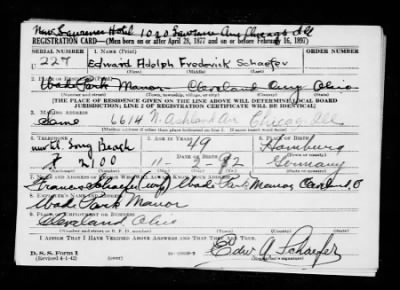 New Lawrence Hotel 1020 Lawrence Ave Chicago Ill
REGISTRATION CARD—(Men born on or after April 28, 1877 and on or before February 16, 1897)
SERIAL NUMBER 1. Name (Print) ORDER NUMBER
U 227 Edward Adolph Frederick Schaefer
(First) (Middle) (Last)
2. Place of Residence (Print)
Wade Park Manor Cleveland Cuy Ohio
(Number and street) (Town, township, village, or city) (County) (State)
[THE PLACE OF RESIDENCE GIVEN ON THE LINE ABOVE WILL DETERMINE LOCAL BOARD
JURISDICTION; LINE 2 OF REGISTRATION CERTIFICATE WILL BE IDENTICAL]
3. Mailing Address
Same 6614 N. Ashland Ave Chicago Ill
4. Telephone 5. Age in Years 6. Place of Birth
49 Hamburg
Long Beach Date of Birth
2100 11- 2- 82 Germany
7. Name and Address of Person Who Will Always Know Your Address
Frances Schaefer (wife) Wade Park Manor Cleveland, O
8. Employer's Name and Address
Wade Park Manor
9. Place of Employment or Business
Cleveland Ohio
(Number and street or R. F. D. number) (Town) (County) (State)
I Affirm That I Have Verified Above Answers and That They Are True.
D. S. S. Form 1
(Revised 4-1-42)
Edw A. Schaefer